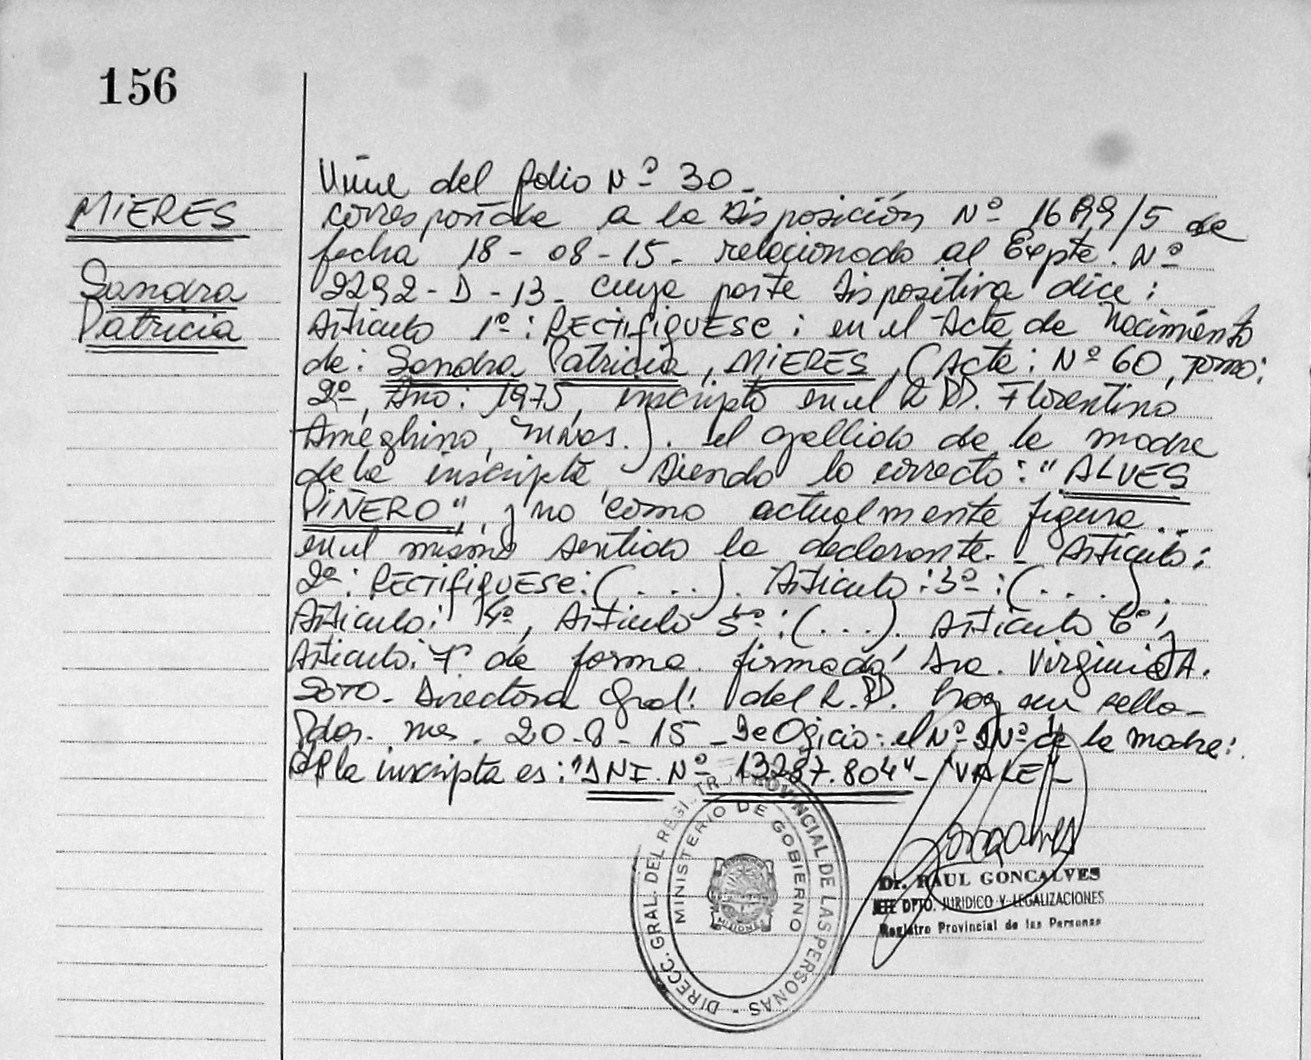 156
MIERES
Sandra
Patricia
Viene del folio Nº 30.
corresponde a la Disposición Nº 1699/5 de
fecha 18-08-15. relacionado al Expte. Nº
2292-D-13. cuya parte dispositiva dice:
Articulo 1º: RECTIFIQUESE: en el Acta de Nacimiento
de: Sandra Patricia, MIERES, (Acta: Nº 60, Tomo:
2º, Año: 1975, inscripta en el R.PP. Florentino
Ameghino, Mnes.). el apellido de la madre
de la inscripta siendo lo correcto: "ALVES
PIÑERO", y no como actualmente figura..
en el mismo sentido la declarante.- Articulo:
2º: RECTIFIQUESE: (....). Articulo: 3º: (....).
Articulo: 4º, Articulo 5º: (...). Articulo 6º y
Articulo: 7º de forma. firmado: Dra. Virginia A.
SOTO. Directora Gral. del R.PP. hay un sello-
Pdas. Mes. 20-8-15 - De Oficio: el Nº DNº de la madre:
de la inscripta es: "DNI. Nº 13287.804" - "VALE" -
DIRECC. GRAL. DEL REGISTR. PROVINCIAL DE LAS PERSONAS -
MINISTERIO DE GOBIERNO
MISIONES
Dr. RAUL GONCALVES
JEFE DPTO. JURIDICO Y LEGALIZACIONES
Registro Provincial de las Personas